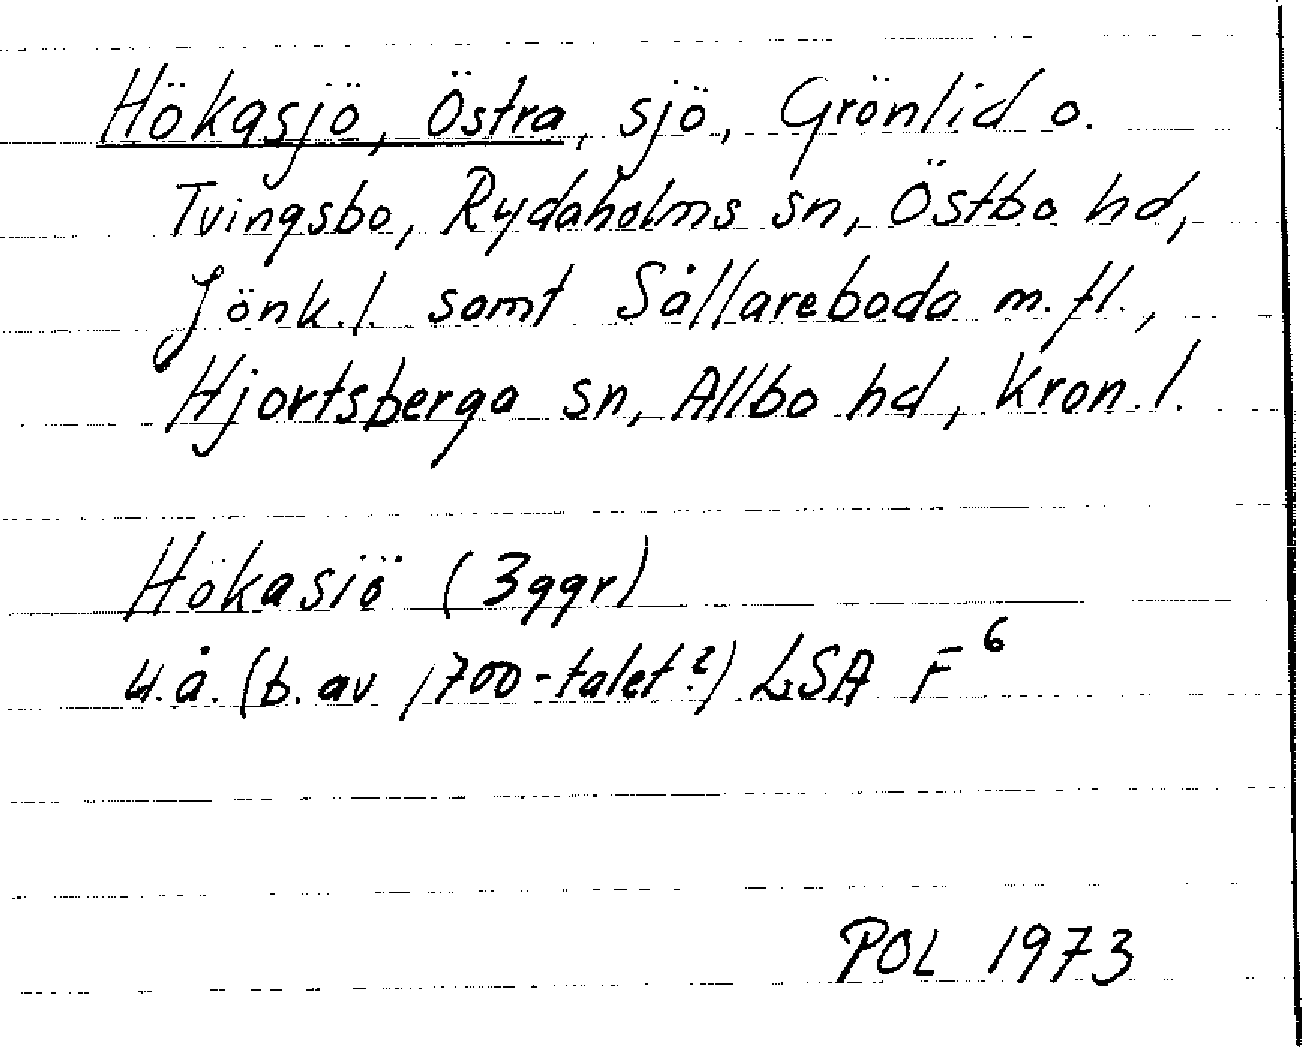 Hökasjö, Östra, sjö, Grönlid o.
Tvingsbo, Rydaholms sn, Östbo hd,
Jönk. l. samt Sållareboda m. fl.,
Hjortsberga sn, Allbo hd, Kron. l.
Hökasiö (3ggr)
u.å. (b. av 1700-talet?) LSA F⁶
POL 1973